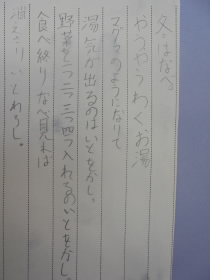 冬はなべ
やうやうわくお湯
マグマのようになりて
湯気が出るのはいとをかし。
野菜を二つ三つ四つ入れてるのいとをかし。
食べ終りなべ見れば
消えさり いとわろし。